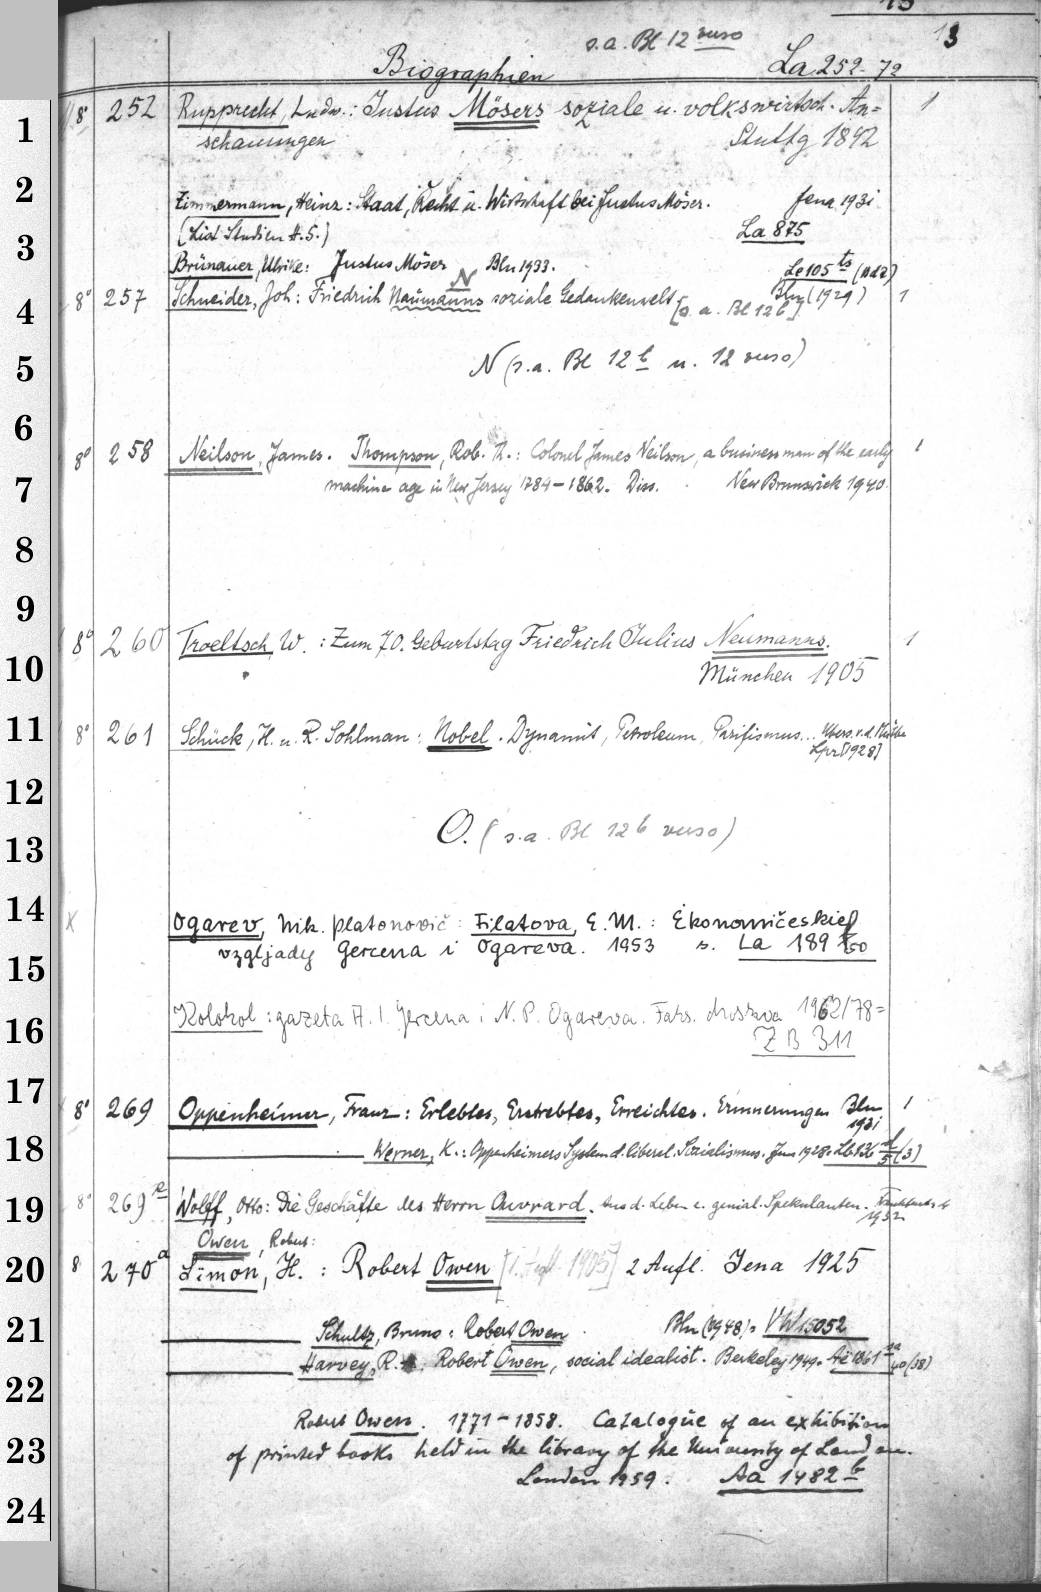 13
s.a. Bl 12 verso 13
Biographien La 252-72
1 8° 252 Rupprecht, Ludw.: Justus Mösers soziale u. volkswirtsch. An= 1
schauungen Stuttg 1892
2 Zimmermann, Heinz: Staat, Recht u. Wirtschaft bei Justus Möser. Jena 1931
3 (List Studien H. 5.) La 875
Brünauer, Ulrike: Justus Möser Bln 1933. Le 105 ts (112)
N
4 8° 257 Schneider, Joh: Friedrich Naumanns soziale Gedankenwelt [s. a. Bl 12 b] Bln (1929) 1
5 N (s.a. Bl 12 b u. 12 verso)
6
8° 258 Neilson, James. Thompson, Rob. T.: Colonel James Neilson, a business man of the early 1
7 machine age in New Jersey 1784-1862. Diss. New Brunswick 1940.
8
9
8° 260 Troeltsch, W. : Zum 70. Geburtstag Friedrich Julius Neumanns. 1
10 München 1905
11 8° 261 Schück, H. u. R. Sohlman: Nobel. Dynamit, Petroleum, Pazifismus... Übers. v. d.
Lpz [1928]
12
13 O. (s.a. Bl 12 b verso)
14 x Ogarev, Nik. Platonovič: Filatova, E. M.: Ėkonomičeskie
15 vzgljady Gercena i Ogareva. 1953 s. La 189
16 Kolokol: gazeta A. I. Gercena i N. P. Ogareva. Faks. Moskva 1962/78=
ZB 311
17 8° 269 Oppenheimer, Franz: Erlebtes, Erstrebtes, Erreichtes. Erinnerungen Bln 1
1931
18 Werner, K.: Oppenheimers System d. liberal. Sozialismus. Jena 1928. (3)
19 8° 269 Wolff, Otto: Die Geschäfte des Herrn Ouvrard. Aus d. Leben e. genial. Spekulanten.
1932
Owen, Robert:
20 8 270 a Simon, H. : Robert Owen 1905 2 Aufl. Jena 1925
21 Schultz, Bruno: Robert Owen Bln (1948) = VW 15052
Harvey, R. Robert Owen, social idealist. Berkeley 1949. Aë 1861 na 40 (38)
22
Robert Owen. 1771-1858. Catalogue of an exhibition
23 of printed books held in the library of the University of London.
London 1959. Aa 1482 b
24